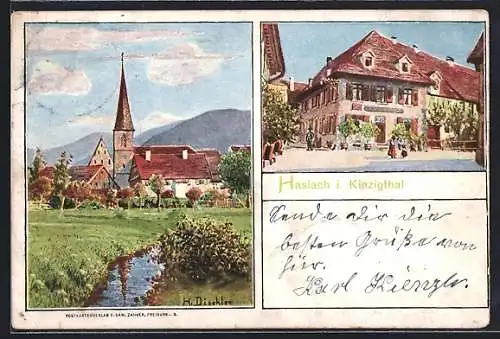 Haslach i. Kinzigthal
Sende dir die
besten Grüße von
hier.
Karl Kienzle.
H. Dischler
POSTKARTENVERLAG V. CARL ZATHER, FREIBURG i. B.